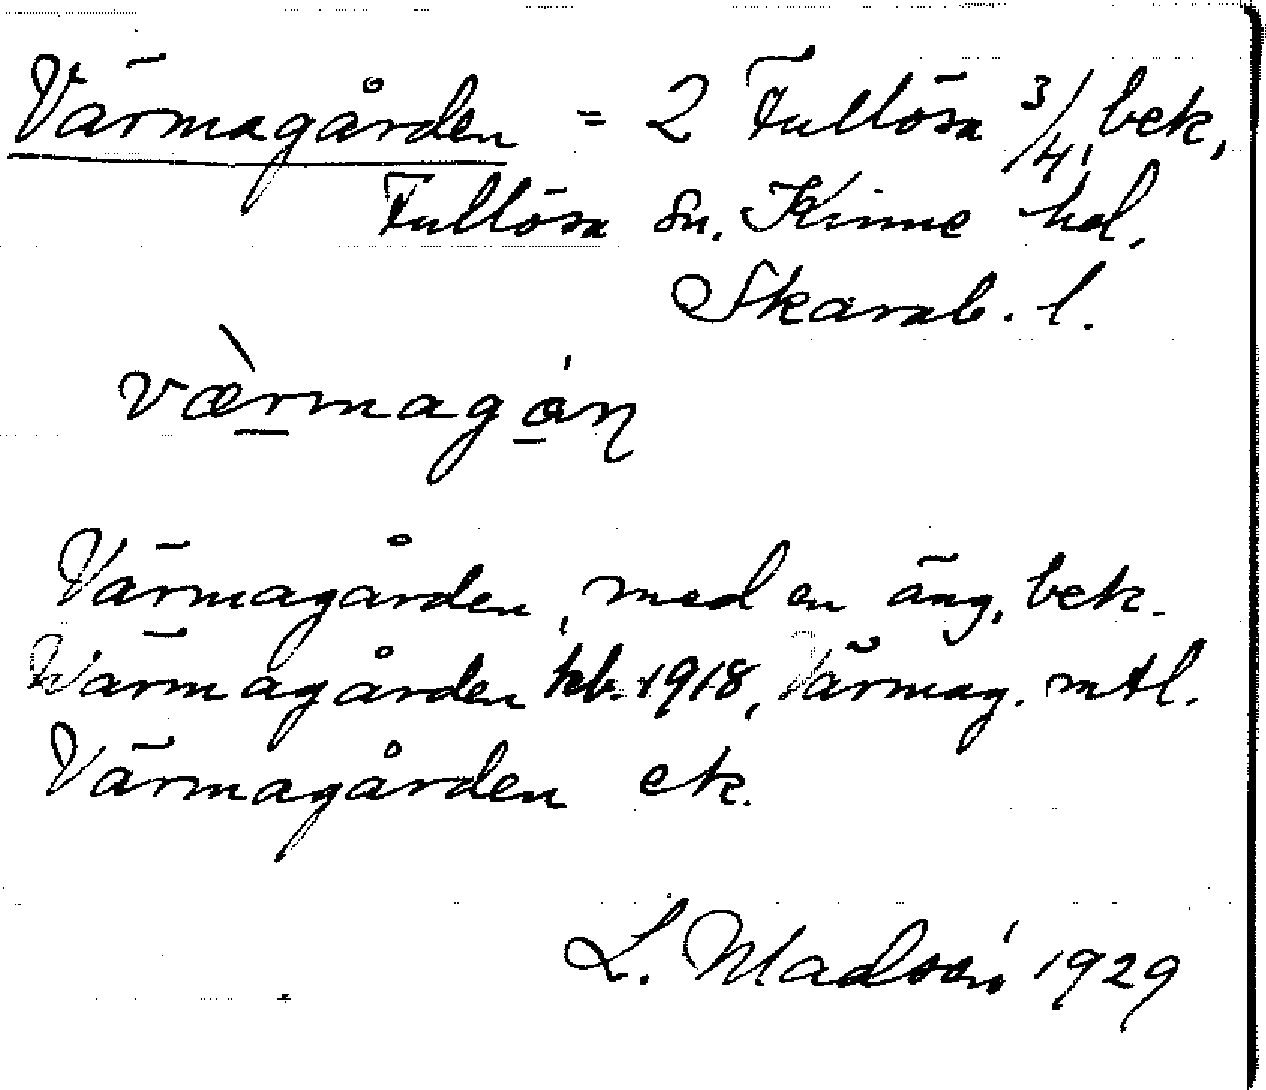 Värmagården = 2 Fullösa 3/4, bek,
Fullösa sn. Kinne hd.
Skarab. l.
væ̀rmagáɳ
Värmagården, med en äng, bek.
Wärmagården kb. 1918, Värmag. mtl.
Värmagården ek.
L. Madsén 1929